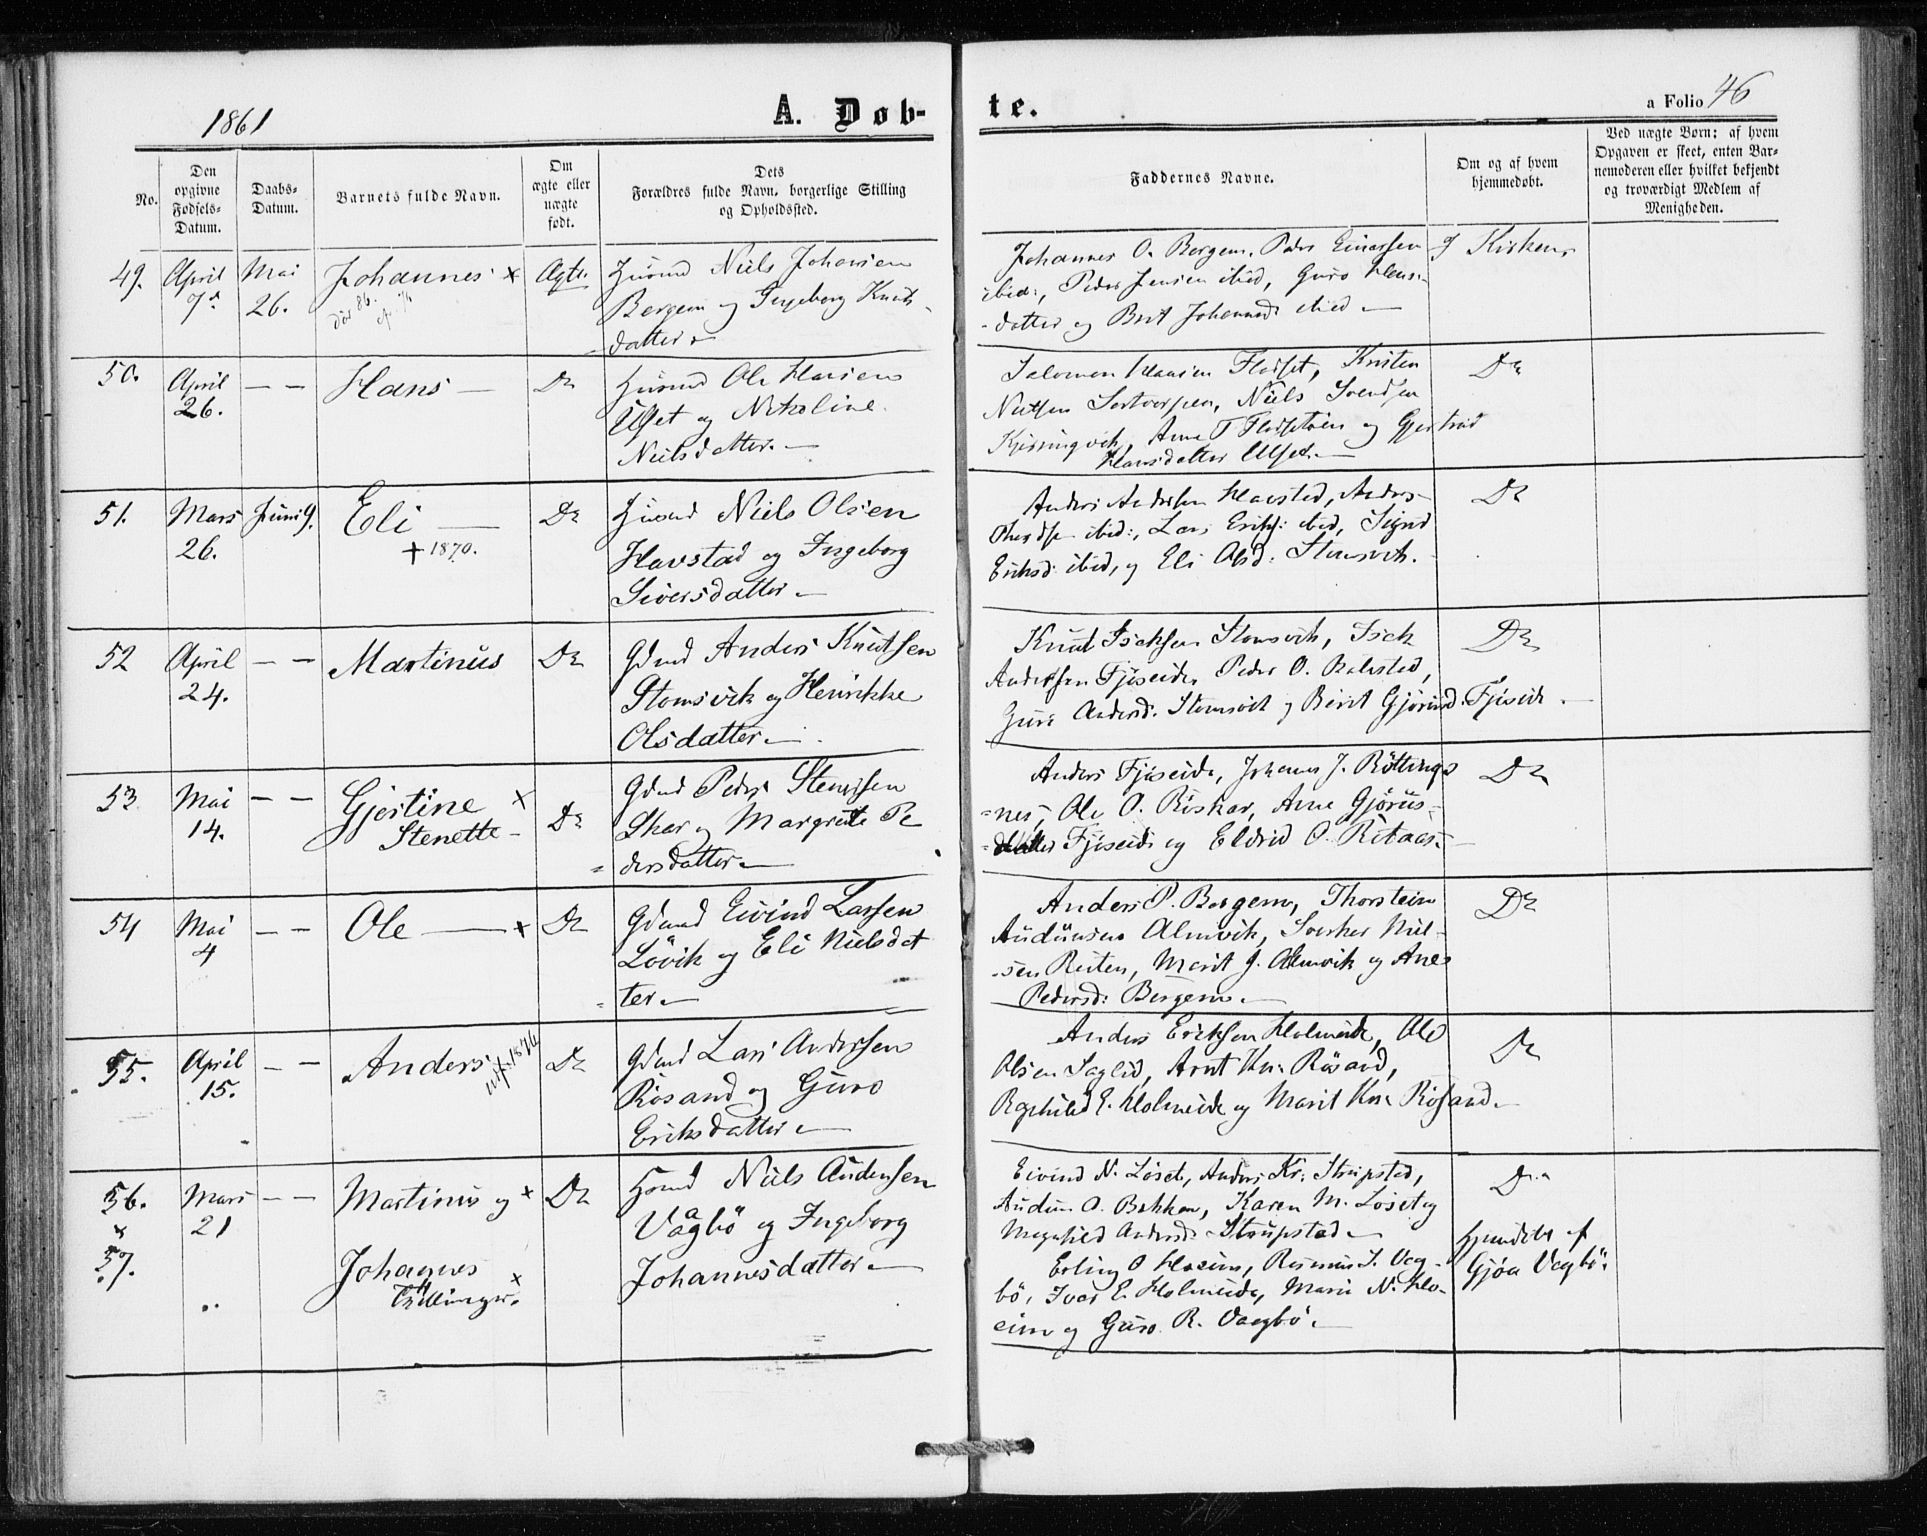 1861
A. Døb-
te.
a Folio 46
No.
Den
opgivne
Fødsels-
Datum.
Daabs-
Datum.
Barnets fulde Navn.
Om
ægte eller
uægte
født.
Dets
Forældres fulde Navn, borgerlige Stilling
og Opholdssted.
Faddernes Navne.
Om og af hvem
hjemmedøbt.
Ved uægte Børn; af hvem
Opgaven er skeet, enten Bar-
nemoderen eller hvilket bekjendt
og troværdigt Medlem af
Menigheden.
49. April Mai Johannes × Ægte Niels Johansen
7de 26.
Bergem og Ingeborg Knuts-
datter
Johannes O. Bergem, Peder Einarsen
ibid:, Peder Jensen ibid, Guro Hans-
datter og Brit Johannesd ibid —
I Kirken
50. April — — Hans — Do Ole Hansen
26.
Ulset og Nikoline
Nielsdatter. —
Salomon Hansen Flodset, Kristen
Niels Svendsen
Arne T Flodset og Gjertrud
Hansdatter Ulset. —
Do
51. Mars Juni 9. Eli — Do Niels Olsen
26. + 1870.
Havstad og Ingeborg
Siversdatter —
Anders Andersen Havstad, Anders
ibid:, Lars Eriks: ibid, Sigrid
Eriksd: ibid, og Eli Olsd: Stomsvik.
Do
52 April — — Martinus Do Gdmd Anders Knutsen
24.
Stomsvik og Henrikke
Olsdatter —
Knut Isaksen Stomsvik, Isak
Andersen Fjiseide, Peder O.
Guro Andersd: Stomsvik og Berit Gjørusd: Fjiseide.
Do
53 Mai — — Gjertine × Do Gdmd Peder Stensen
14. Stenette —
Sker og Margrete Pe
dersdatter —
Anders Fjiseide, Johannes J. Röttings
nes, Ole O. Riskar, Arne Gjørus-
datter Fjiseide og Eldrid O. Ritaas. —
Do
54 Mai — — Ole — × Do Gdmd Eivind Larsen
4
Lövik og Eli Nielsdat
ter —
Anders P. Bergem, Thorstein
Audunsen Almvik, Sverker Niel-
sen Reiten, Marit J. Almvik og Ane
Pedersd: Bergem —
Do
55. April — — Anders Do Gdmd Lars Andersen
15.
Rösand og Guro
Eriksdatter —
Anders Eriksen Holmeide, Ole
Olsen Saglid, Arnt Kn: Rösand,
Ragnhild E. Holmeide og Marit Kn: Rösand —
Do
56. Mars — — Martinus og × Do Niels Audensen
& 21
Vågbö og Ingeborg
57. Johannes
Tvillinger. ×
Johannesdatter —
Eivind N. Löset, Anders Kr: Strupstad,
Audun O. Bakken, Karen M. Löset og
Magnhild Andersd: Strupstad —
Do
Erling O. Rasmus I. Vag-
bö, Ivar E. Holmeide, Marie N.
og Guro R. Vaagbö. —
Hjemdöbt af
Gjøa Vagbö.